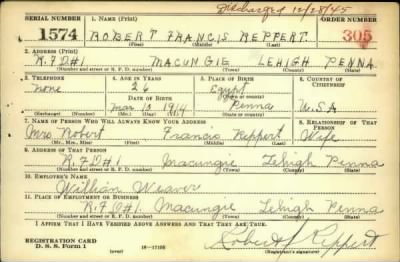 Discharged 10/28/45
SERIAL NUMBER 1. NAME (Print) ORDER NUMBER
1574 ROBERT FRANCIS REPPERT 305
(First) (Middle) (Last)
2. ADDRESS (Print)
R.F.D#1 MACUNGIE LEHIGH PENNA
(Number and street or R. F. D. number) (Town) (County) (State)
3. TELEPHONE 4. AGE IN YEARS 5. PLACE OF BIRTH 6. COUNTRY OF CITIZENSHIP
none 26 Egypt
DATE OF BIRTH (Town or county)
Mar 13 1914 Penna U.S.A
(Exchange) (Number) (Mo.) (Day) (Yr.) (State or country)
7. NAME OF PERSON WHO WILL ALWAYS KNOW YOUR ADDRESS 8. RELATIONSHIP OF THAT PERSON
Mrs. Robert Francis Reppert Wife
(Mr., Mrs., Miss) (First) (Middle) (Last)
9. ADDRESS OF THAT PERSON
R.F.D#1. Macungie Lehigh Penna
(Number and street or R. F. D. number) (Town) (County) (State)
10. EMPLOYER'S NAME
William Weaver
11. PLACE OF EMPLOYMENT OR BUSINESS
R.F.D#1 Macungie Lehigh Penna
(Number and street or R. F. D. number) (Town) (County) (State)
I AFFIRM THAT I HAVE VERIFIED ABOVE ANSWERS AND THAT THEY ARE TRUE.
REGISTRATION CARD
D. S. S. Form 1 (over) Robert F Reppert
(Registrant's signature)